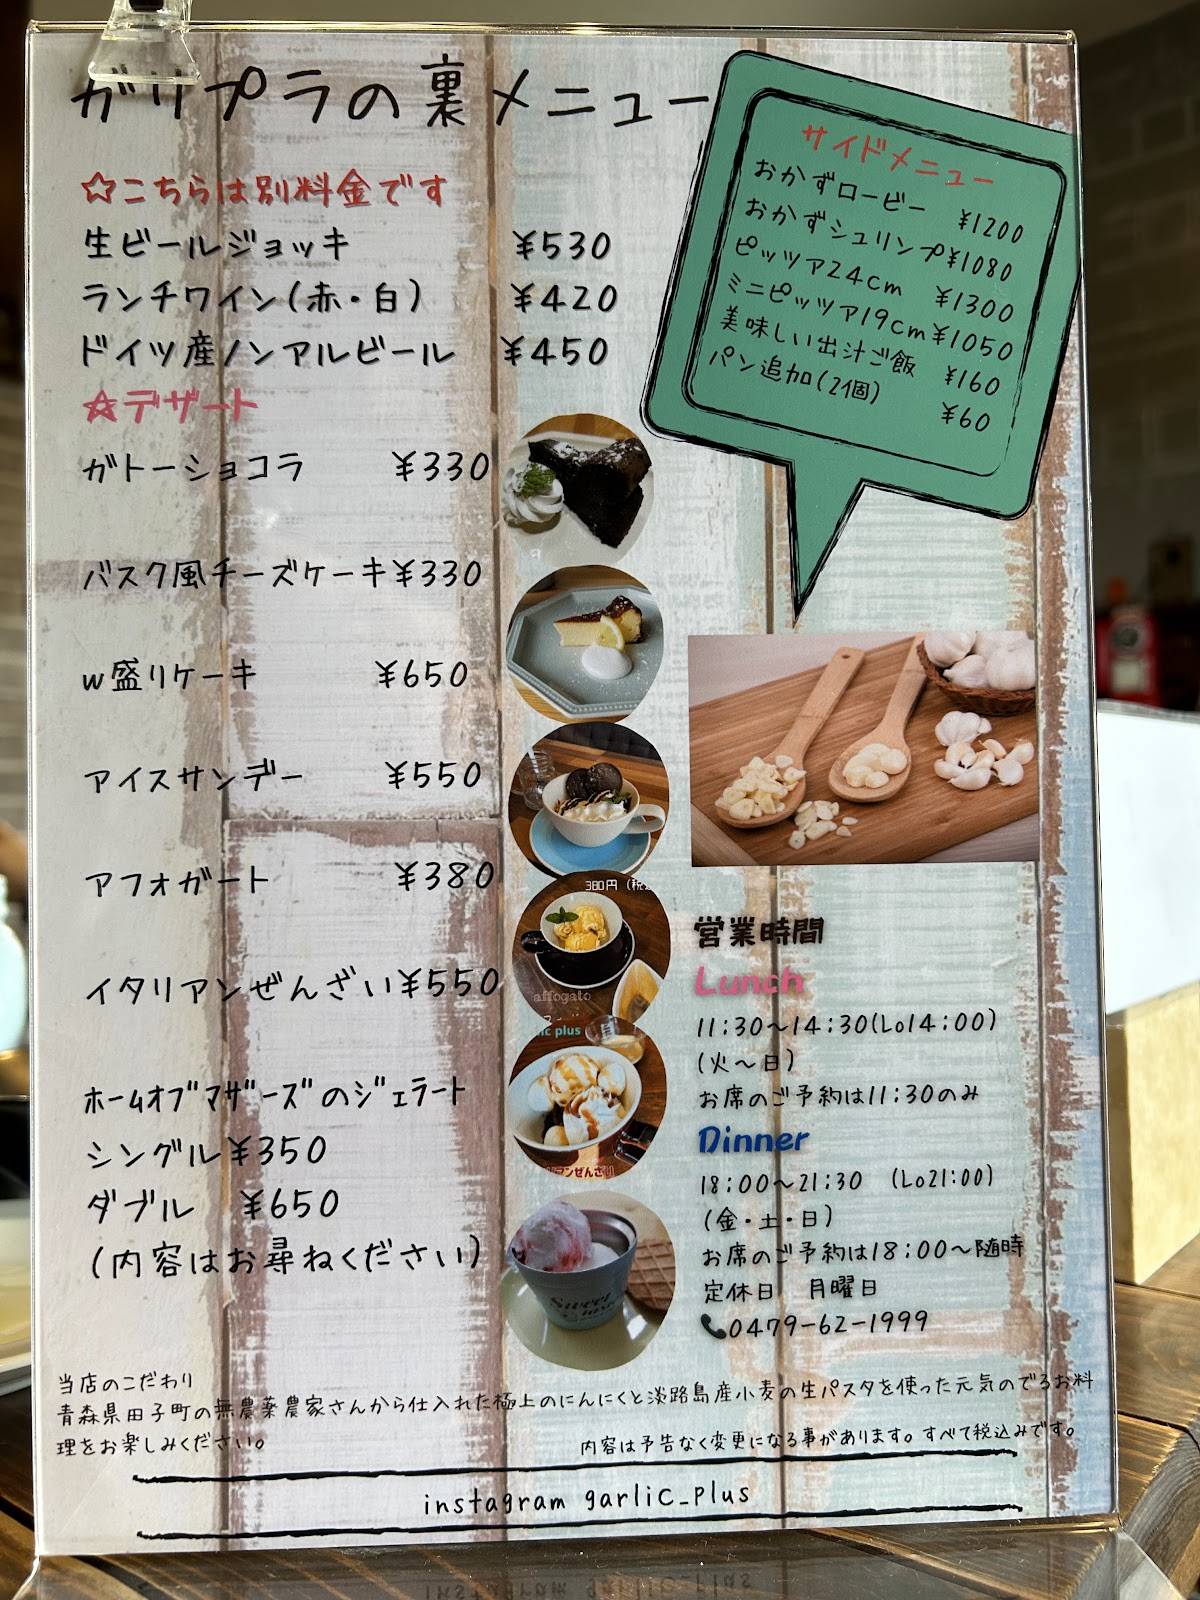 ガリプラの裏メニュー
☆こちらは別料金です
生ビールジョッキ ¥530
ランチワイン(赤・白) ¥420
ドイツ産ノンアルビール ¥450
☆デザート
ガトーショコラ ¥330
バスク風チーズケーキ¥330
w盛りケーキ ¥650
アイスサンデー ¥550
アフォガート ¥380
イタリアンぜんざい¥550
ホームオブマザーズのジェラート
シングル¥350
ダブル ¥650
(内容はお尋ねください)
サイドメニュー
おかずロービー ¥1200
おかずシュリンプ¥1080
ピッツア24cm ¥1300
ミニピッツア19cm¥1050
美味しい出汁ご飯 ¥160
パン追加(2個) ¥60
380円(税
affogato
ic plus
アンぜんざい
Sweet
営業時間
Lunch
11:30～14:30(Lo14:00)
(火～日)
お席のご予約は11:30のみ
Dinner
18:00～21:30 (Lo21:00)
(金・土・日)
お席のご予約は18:00～随時
定休日 月曜日
📞0479-62-1999
当店のこだわり
青森県田子町の無農薬農家さんから仕入れた極上のにんにくと淡路島産小麦の生パスタを使った元気のでるお料
理をお楽しみください。
内容は予告なく変更になる事があります。すべて税込みです。
instagram garlic_plus